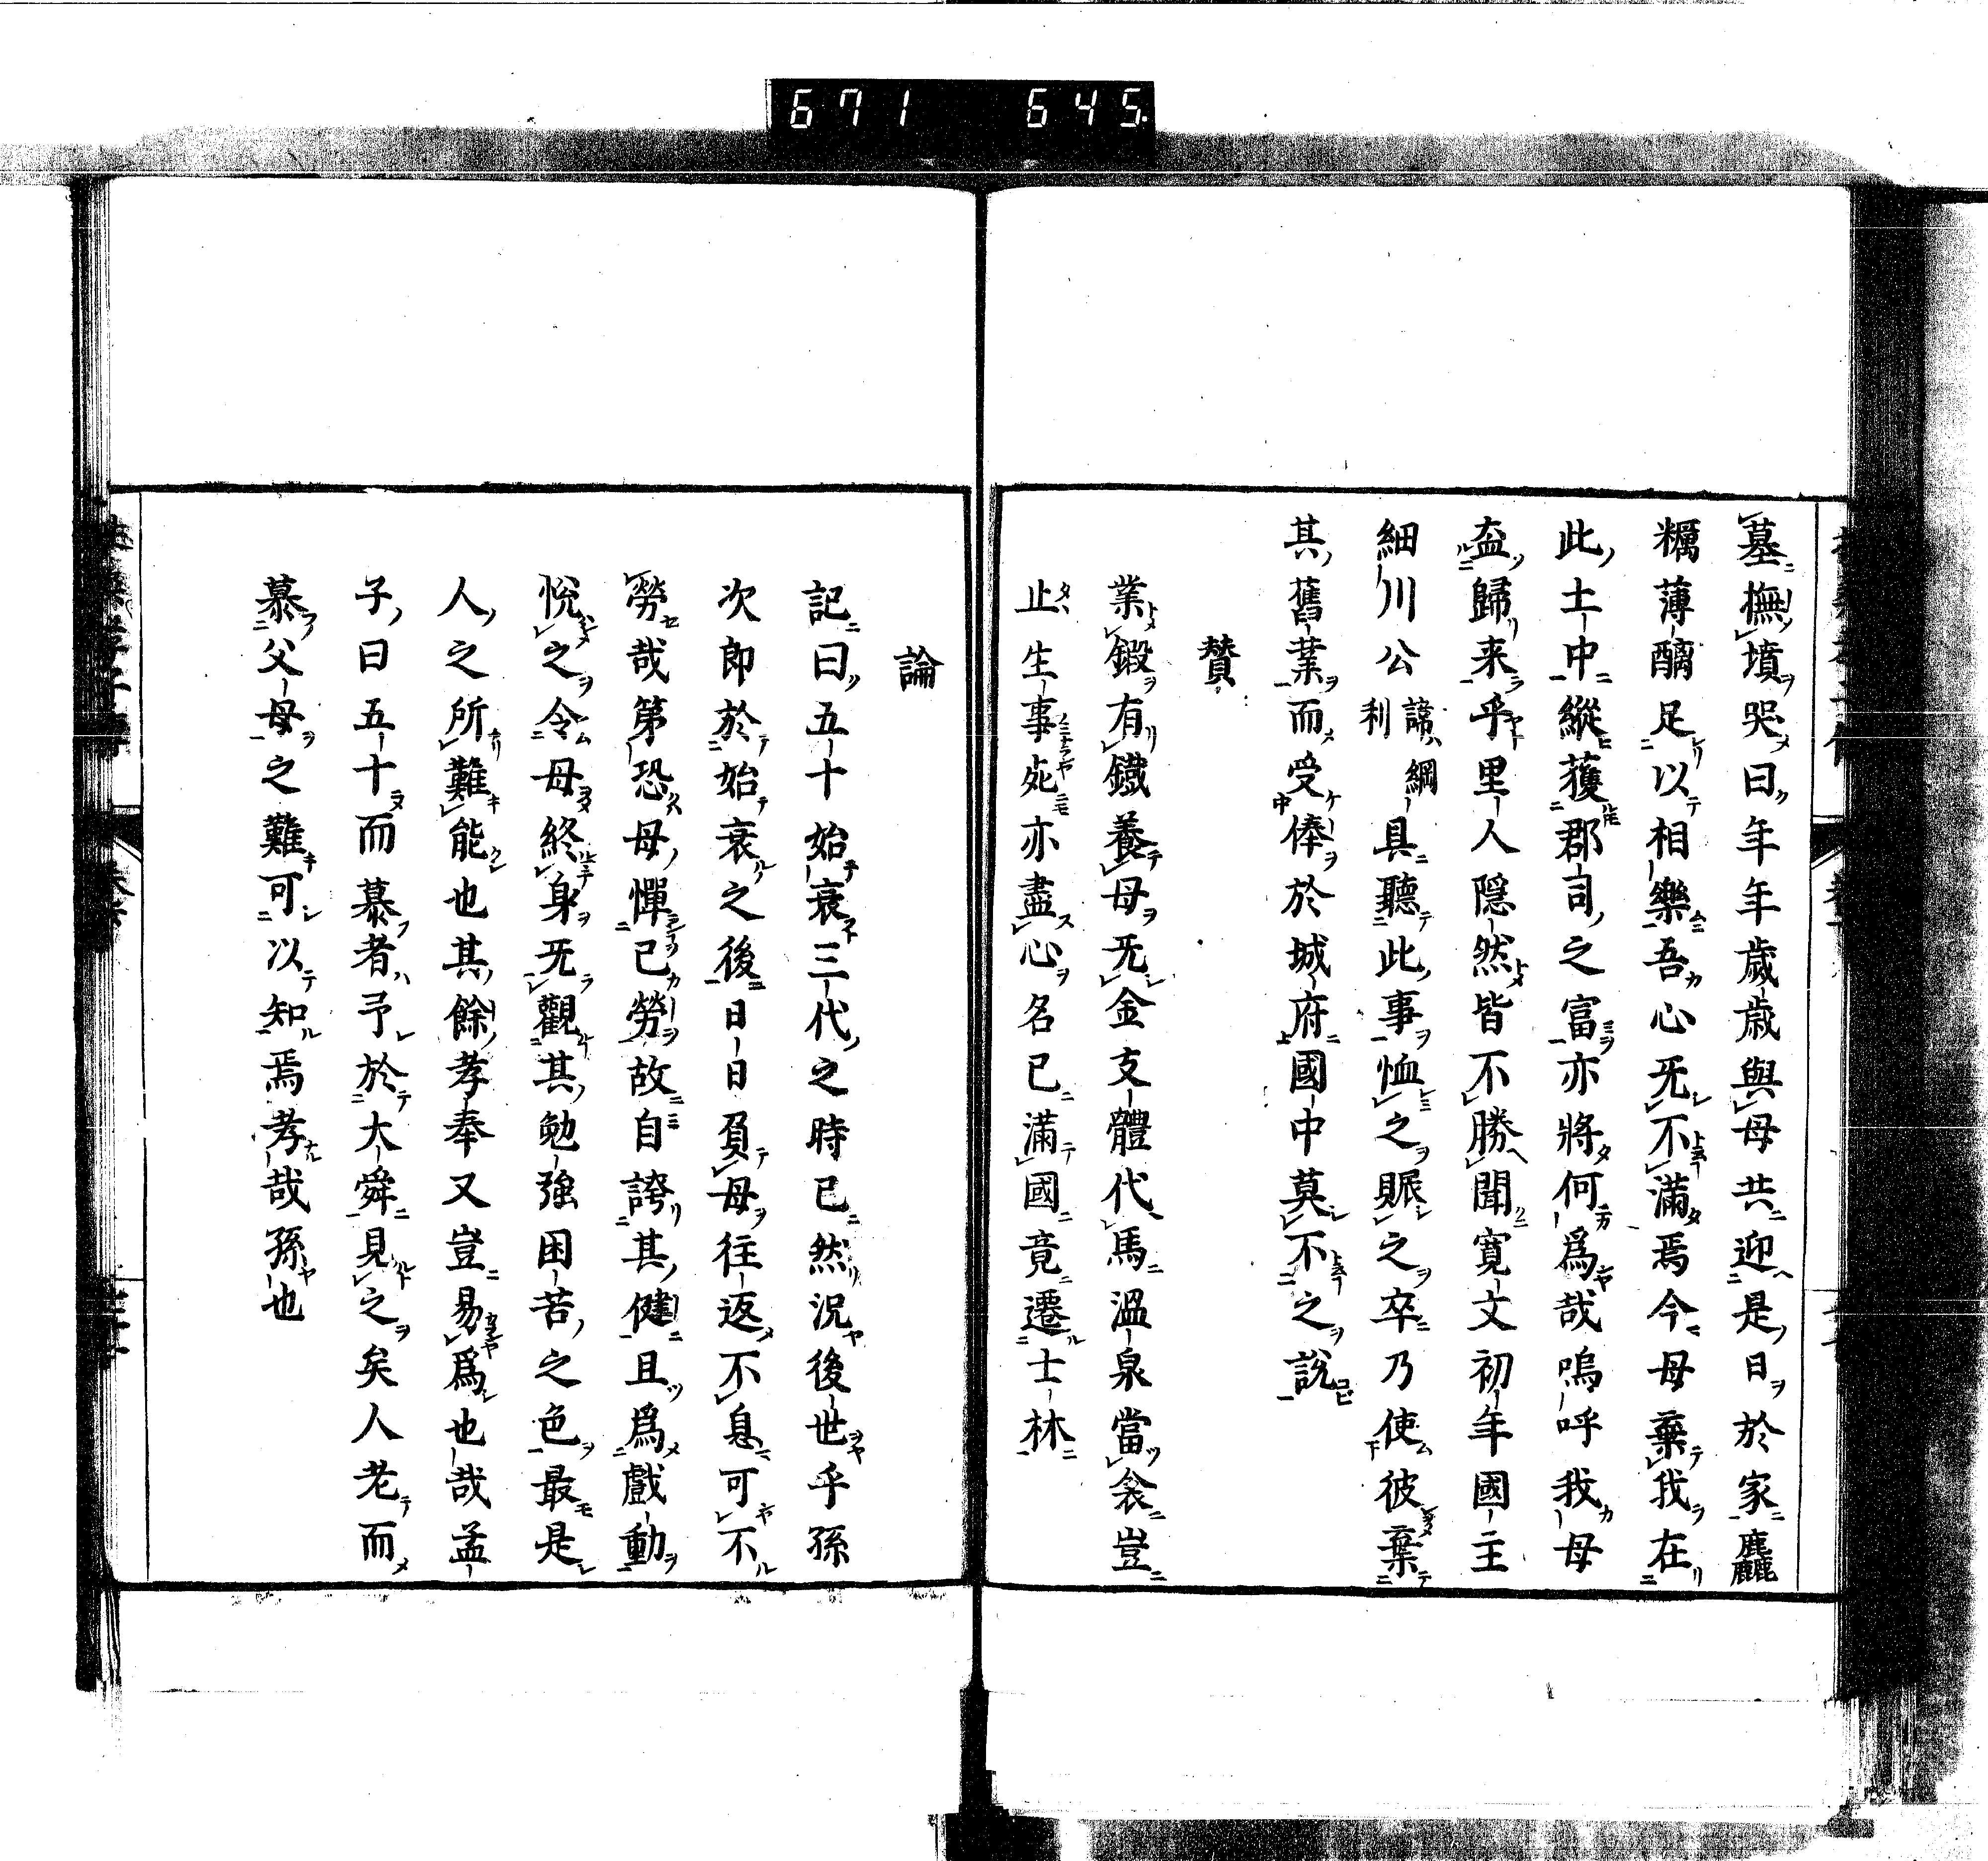 671 645
墓撫墳哭曰年年歳歳與母共迎是日於家麤
糲薄醨足以相樂吾心无不滿焉今母棄我在
此土中縱獲郡司之富亦將何爲哉嗚呼我母
盍歸来乎里人隠然皆不勝聞寛文初年國主
細川公諱綱利具聽此事恤之賑之卒乃使彼棄
其舊業而受俸於城府國中莫不之說
賛
業鍛有鐡養母无金支體代馬溫泉當衾豈
止生事死亦盡心名已滿國竟遷士林
論
記曰五十始衰三代之時已然況後世乎孫
次郎於始衰之後日日負母往返不息可不
勞哉第恐母憚己勞故自誇其健且爲戲動
悅之令母終身无觀其勉強困苦之色最是
人之所難能也其餘孝奉又豈易爲也哉孟
子曰五十而慕者予於大舜見之矣人老而
慕父母之難可以知焉孝哉孫也